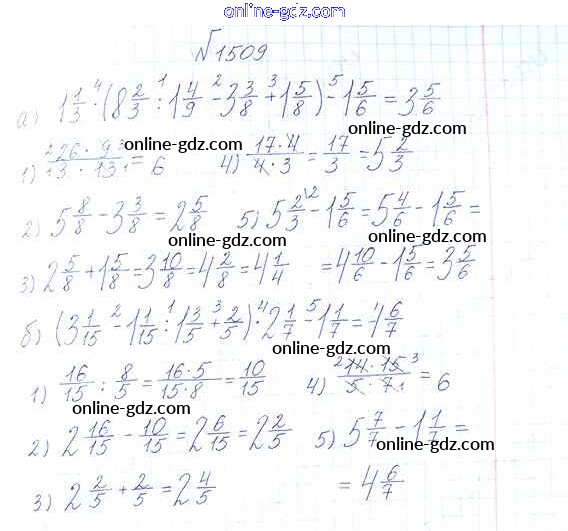 online-gdz.com
№1509
а) 1 1/3 ·⁴ (8 2/3 :¹ 1 4/9 -² 3 3/8 +³ 1 5/8) -⁵ 1 5/6 = 3 5/6
online-gdz.com
1) 26 · 9 / 3 · 13 = 6 4) 17 · 4 / 4 · 3 = 17/3 = 5 2/3
online-gdz.com
2) 5 8/8 - 3 3/8 = 2 5/8 5) 5 2/3 - 1 5/6 = 5 4/6 - 1 5/6 =
online-gdz.com
online-gdz.com
3) 2 5/8 + 1 5/8 = 3 10/8 = 4 2/8 = 4 1/4 = 4 10/6 - 1 5/6 = 3 5/6
online-gdz.com
б) (3 1/15 -² 1 1/15 :¹ 1 3/5 +³ 2/5) ·⁴ 2 1/7 -⁵ 1 1/7 = 4 6/7
online-gdz.com
1) 16/15 : 8/5 = 16 · 5 / 15 · 8 = 10/15 4) 14 · 15 / 5 · 7 = 6
online-gdz.com
online-gdz.com
2) 2 16/15 - 10/15 = 2 6/15 = 2 2/5 5) 5 7/7 - 1 1/7 =
online-gdz.com
online-gdz.com
3) 2 2/5 + 2/5 = 2 4/5 = 4 6/7
online-gdz.com